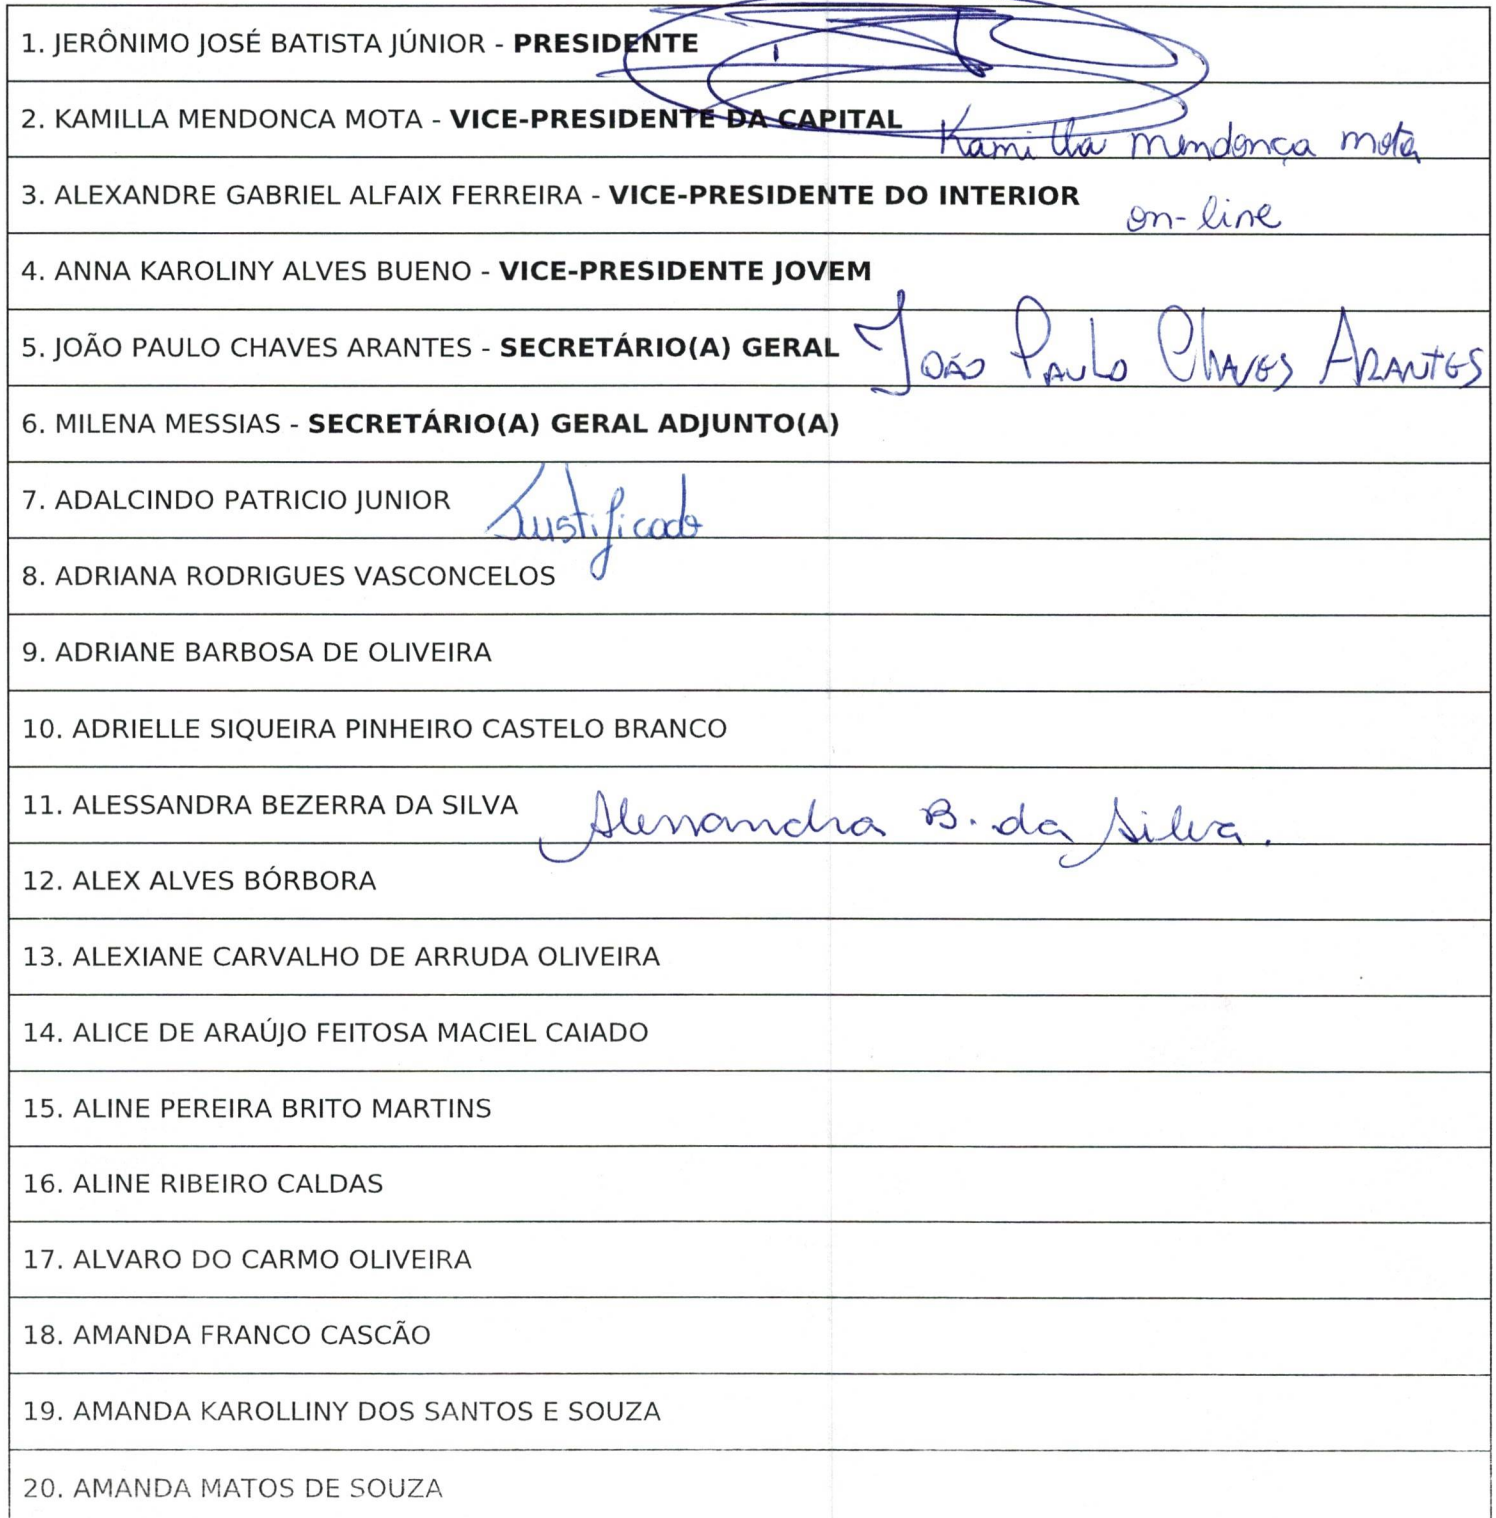 1. JERÔNIMO JOSÉ BATISTA JÚNIOR - PRESIDENTE
2. KAMILLA MENDONCA MOTA - VICE-PRESIDENTE DA CAPITAL Kamilla mendonça mota
3. ALEXANDRE GABRIEL ALFAIX FERREIRA - VICE-PRESIDENTE DO INTERIOR on-line
4. ANNA KAROLINY ALVES BUENO - VICE-PRESIDENTE JOVEM
5. JOÃO PAULO CHAVES ARANTES - SECRETÁRIO(A) GERAL JOÃO PAULO CHAVES ARANTES
6. MILENA MESSIAS - SECRETÁRIO(A) GERAL ADJUNTO(A)
7. ADALCINDO PATRICIO JUNIOR Justificado
8. ADRIANA RODRIGUES VASCONCELOS
9. ADRIANE BARBOSA DE OLIVEIRA
10. ADRIELLE SIQUEIRA PINHEIRO CASTELO BRANCO
11. ALESSANDRA BEZERRA DA SILVA Alessandra B. da Silva.
12. ALEX ALVES BÓRBORA
13. ALEXIANE CARVALHO DE ARRUDA OLIVEIRA
14. ALICE DE ARAÚJO FEITOSA MACIEL CAIADO
15. ALINE PEREIRA BRITO MARTINS
16. ALINE RIBEIRO CALDAS
17. ALVARO DO CARMO OLIVEIRA
18. AMANDA FRANCO CASCÃO
19. AMANDA KAROLLINY DOS SANTOS E SOUZA
20. AMANDA MATOS DE SOUZA